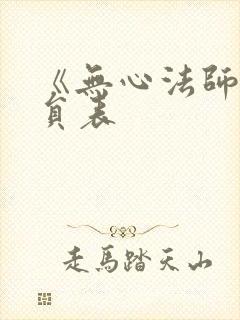 《無心法師
員表
走馬踏天山